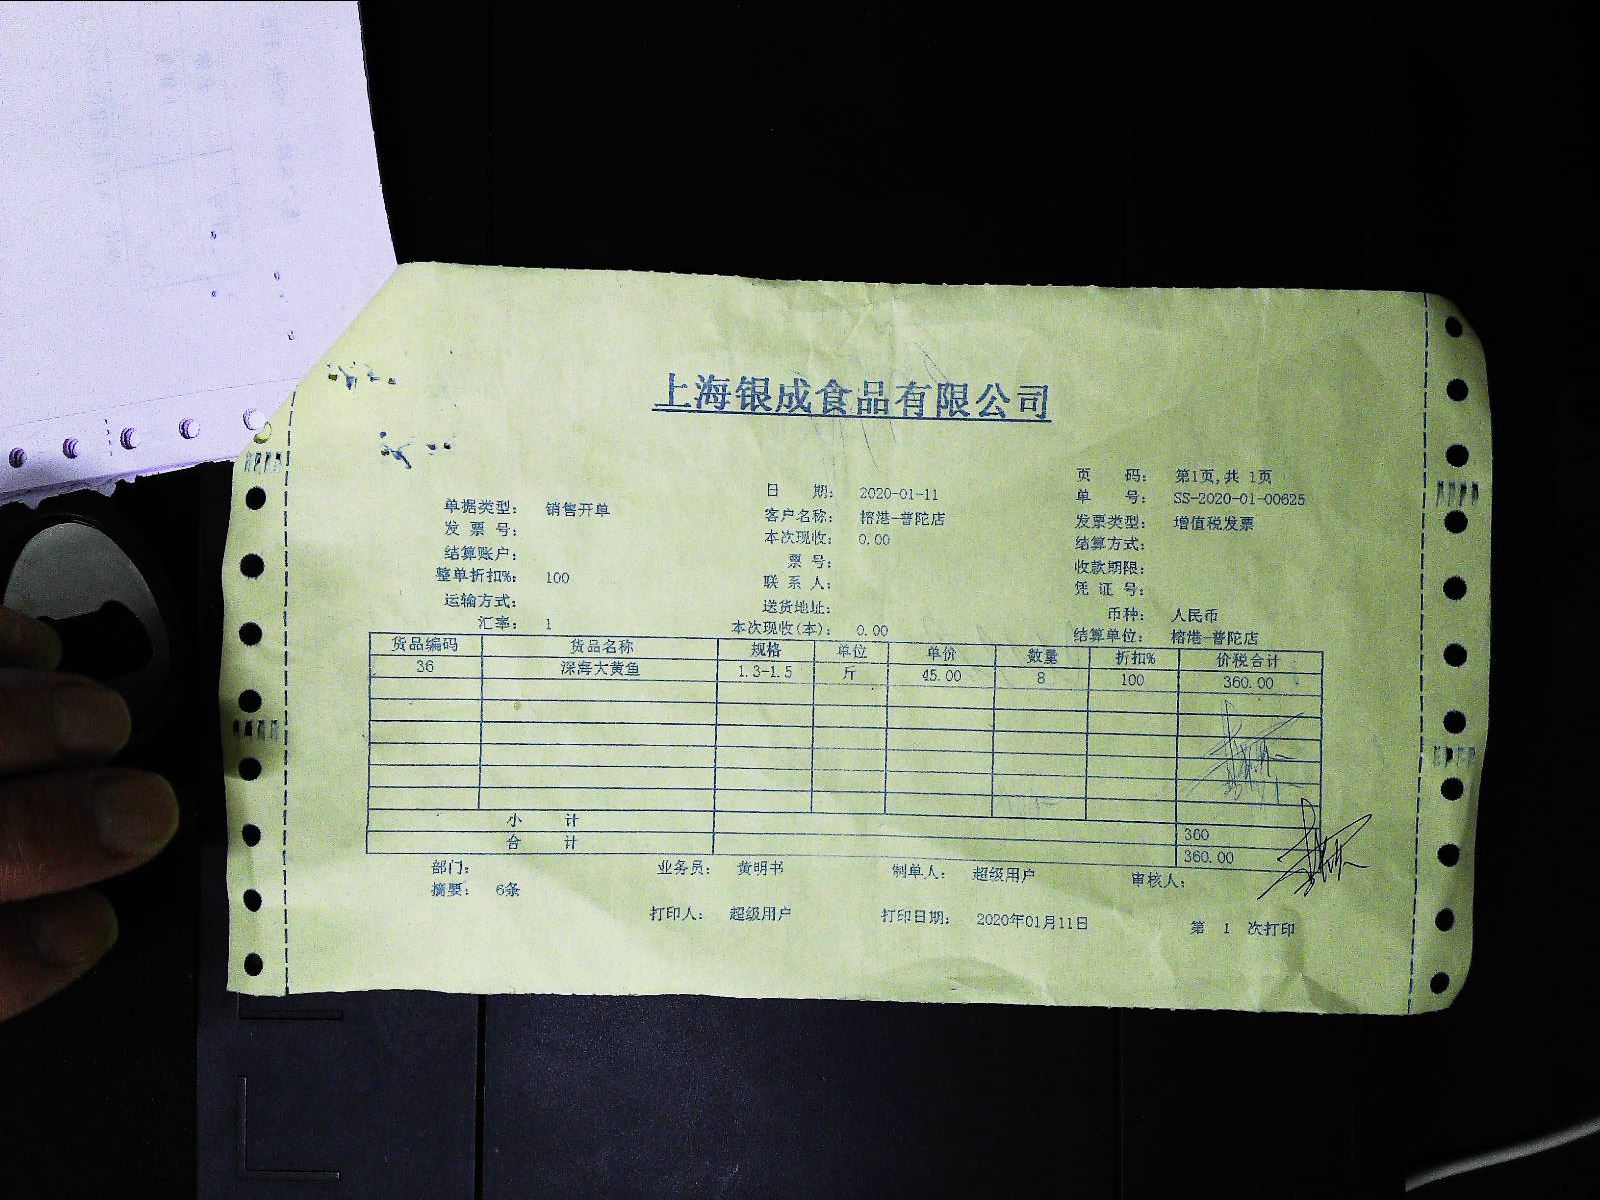 上海银成食品有限公司
页 码: 第1页,共 1页
日 期: 2020-01-11 单 号: SS-2020-01-00625
单据类型: 销售开单 客户名称: 榕港-普陀店 发票类型: 增值税发票
发 票 号: 本次现收: 0.00 结算方式:
结算账户: 票 号: 收款期限:
整单折扣%: 100 联 系 人: 凭 证 号:
运输方式: 送货地址: 币种: 人民币
汇率: 1 本次现收(本): 0.00 结算单位: 榕港-普陀店
货品编码 货品名称 规格 单位 单价 数量 折扣% 价税合计
36 深海大黄鱼 1.3-1.5 斤 45.00 8 100 360.00
小 计 360
合 计 360.00
部门: 业务员: 黄明书 制单人: 超级用户 审核人:
摘要: 6条
打印人: 超级用户 打印日期: 2020年01月11日 第 1 次打印